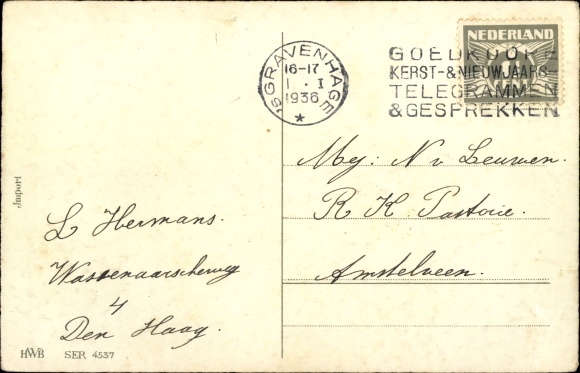 NEDERLAND
'SGRAVENHAGE
16-17
1 . I
1936
GOEDKOOPE
KERST-&NIEUWJAARS-
TELEGRAMMEN
&GESPREKKEN
Mej: N v Leeuwen.
R K Pastorie.
Amstelveen.
L Hermans.
Wassenaarscheweg
4
Den Haag.
Import
HWB SER 4537